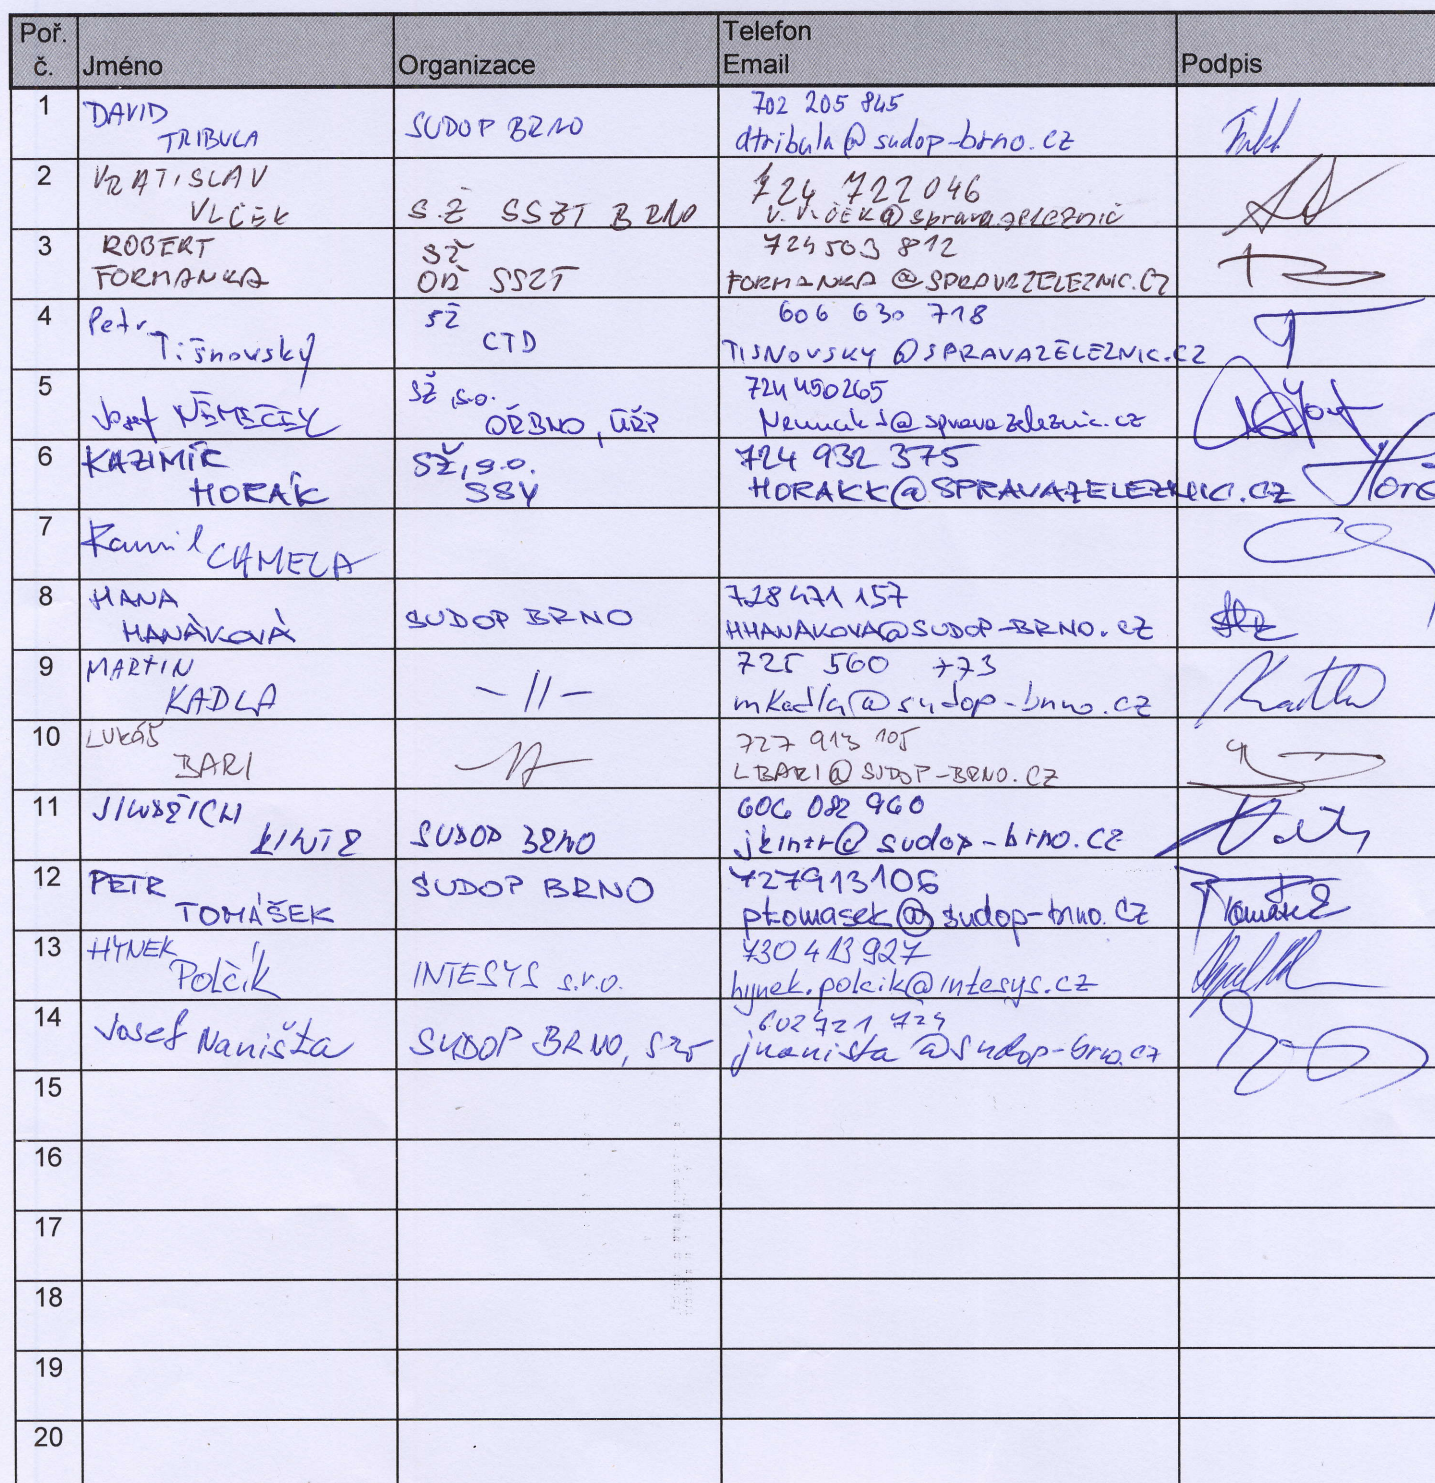 Poř. č. Jméno Organizace Telefon Email Podpis
1 DAVID TRIBULA SUDOP BRNO 702 205 845
dtribula@sudop-brno.cz
2 VRATISLAV VLČEK SŽ SSZT BRNO 724 722 046
3 ROBERT FORMANKA SŽ SSZT 724 503 812
FORMANKA@SPRAVAZELEZNIC.CZ
4 Petr Tišnovský SŽ CTD 606 630 718
TISNOVSKY@SPRAVAZELEZNIC.CZ
5 Josef NĚMEČEK SŽ, s.o. 724 450265
6 KAZIMÍR HORÁK SŽ, s.o. SSV 724 932 375
HORAKK@SPRAVAZELEZNIC.CZ
7 Kamil CHMELA
8 HANA HANÁKOVÁ SUDOP BRNO 728 471 157
HHANAKOVA@SUDOP-BRNO.CZ
9 MARTIN KADLA -||- 725 560 773
mkadla@sudop-brno.cz
10 LUKÁŠ BARI -||- 727 913 105
LBARI@SUDOP-BRNO.CZ
11 JINDŘICH KINTR SUDOP BRNO 606 082 960
jkintr@sudop-brno.cz
12 PETR TOMÁŠEK SUDOP BRNO 727913106
ptomasek@sudop-brno.cz
13 HYNEK Polčík INTESYS s.r.o. 730 413 927
hynek.polcik@intesys.cz
14 Josef Naništa SUDOP BRNO, 602 421 724
jnanista@sudop-brno.cz
15
16
17
18
19
20